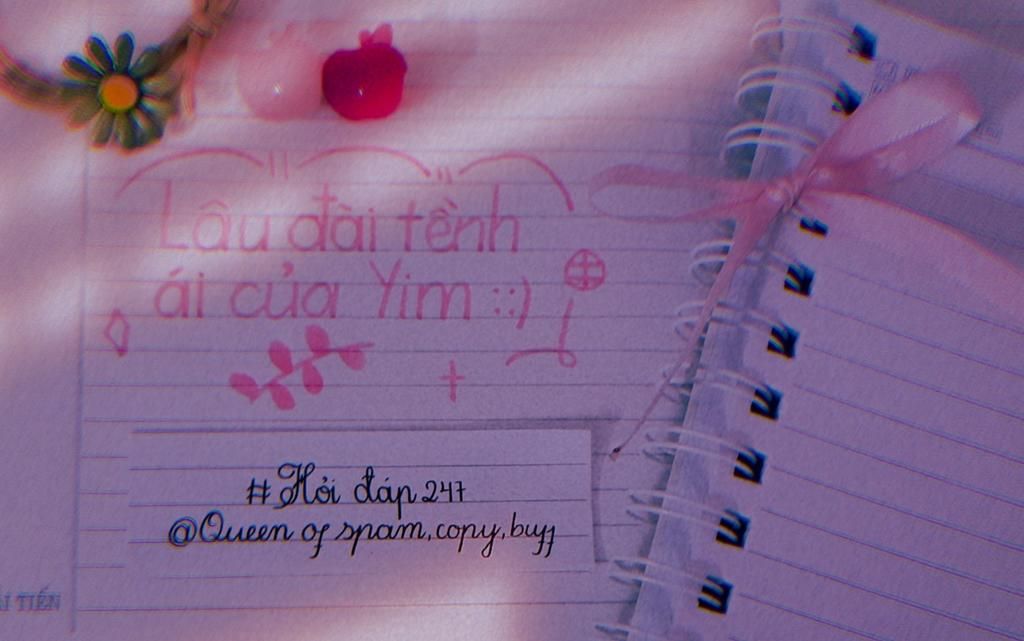 Lâu đài tềnh
ái của Yim ::)
#Hỏi đáp 247
@Queen of spam,copy,buff
TIẾN